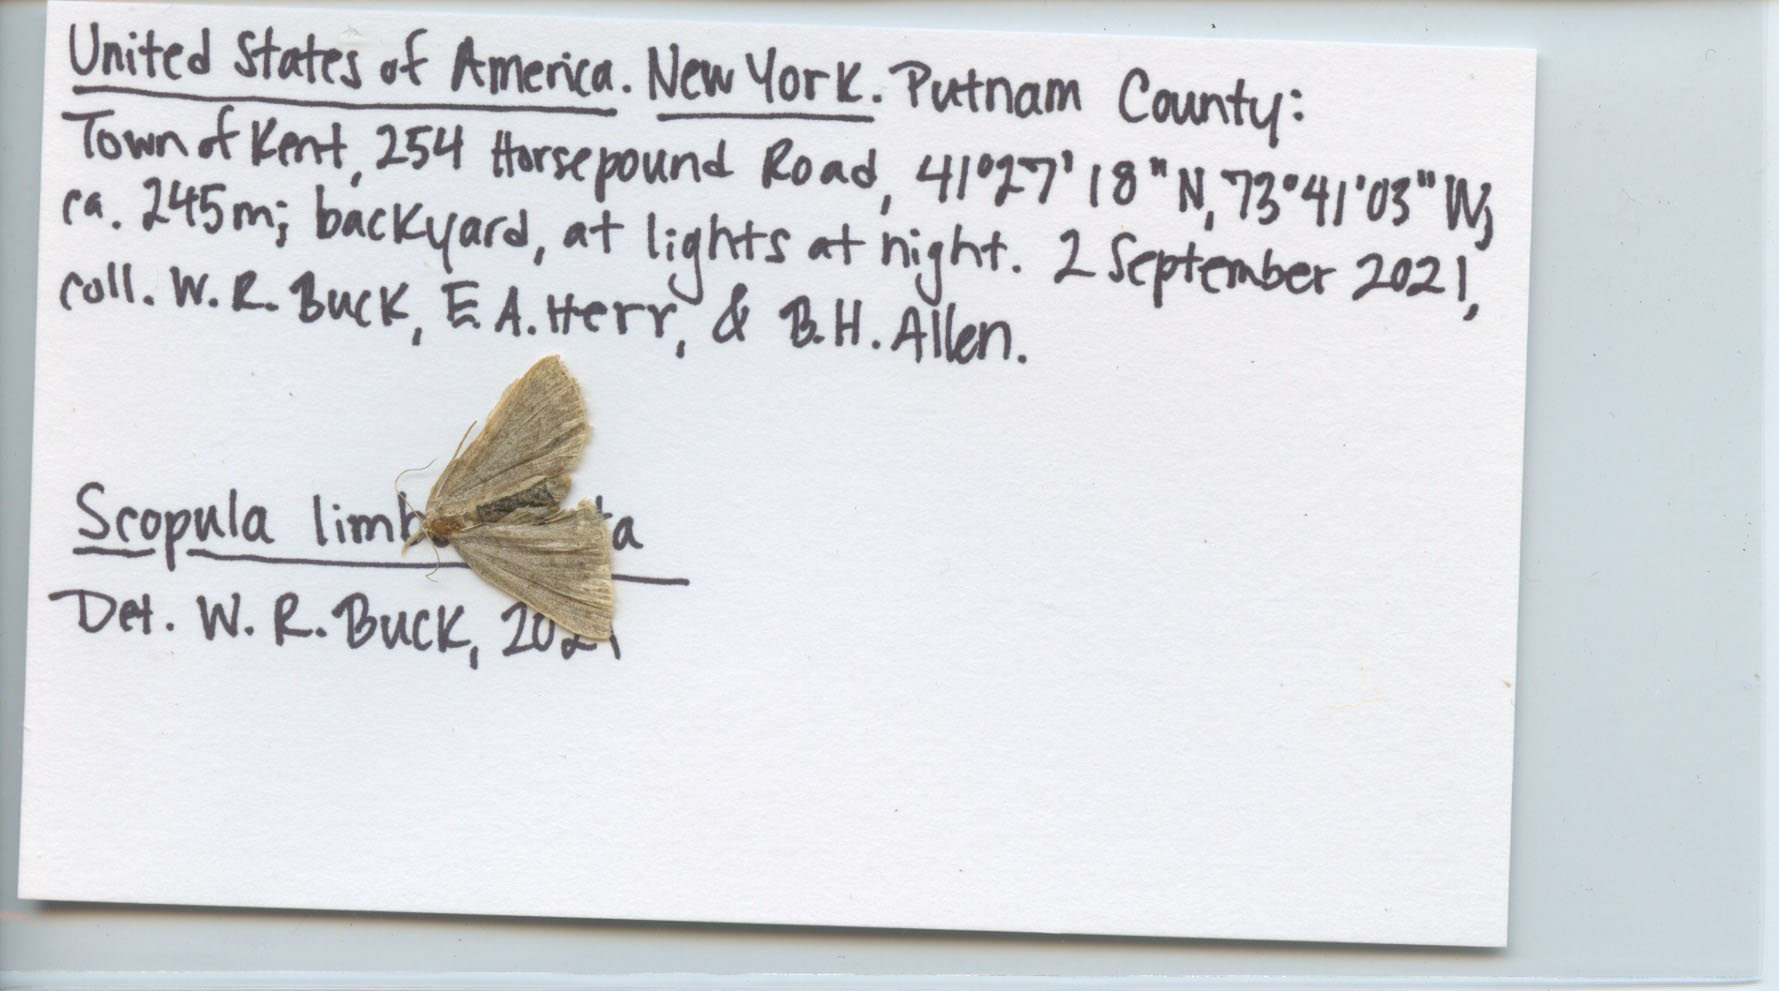 United States of America. New York. Putnam County:
Town of Kent, 254 Horsepound Road, 41°27'18"N, 73°41'03"W;
ca. 245m; backyard, at lights at night. 2 September 2021,
coll. W. R. Buck, E. A. Herr, & B. H. Allen.
Scopula
Det. W. R. Buck, 2021